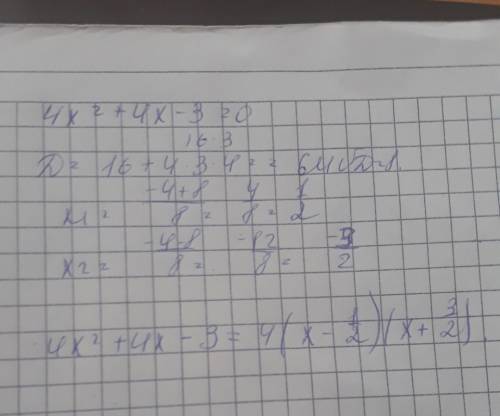 4x² + 4x - 3 = 0
16·3
D = 16 + 4·3·4 = = 64 √D=8
x1 = (-4+8)/8 = 4/8 = 1/2
x2 = (-4-8)/8 = (-12)/8 = (-3)/2
4x² + 4x - 3 = 4(x - 1/2)(x + 3/2)